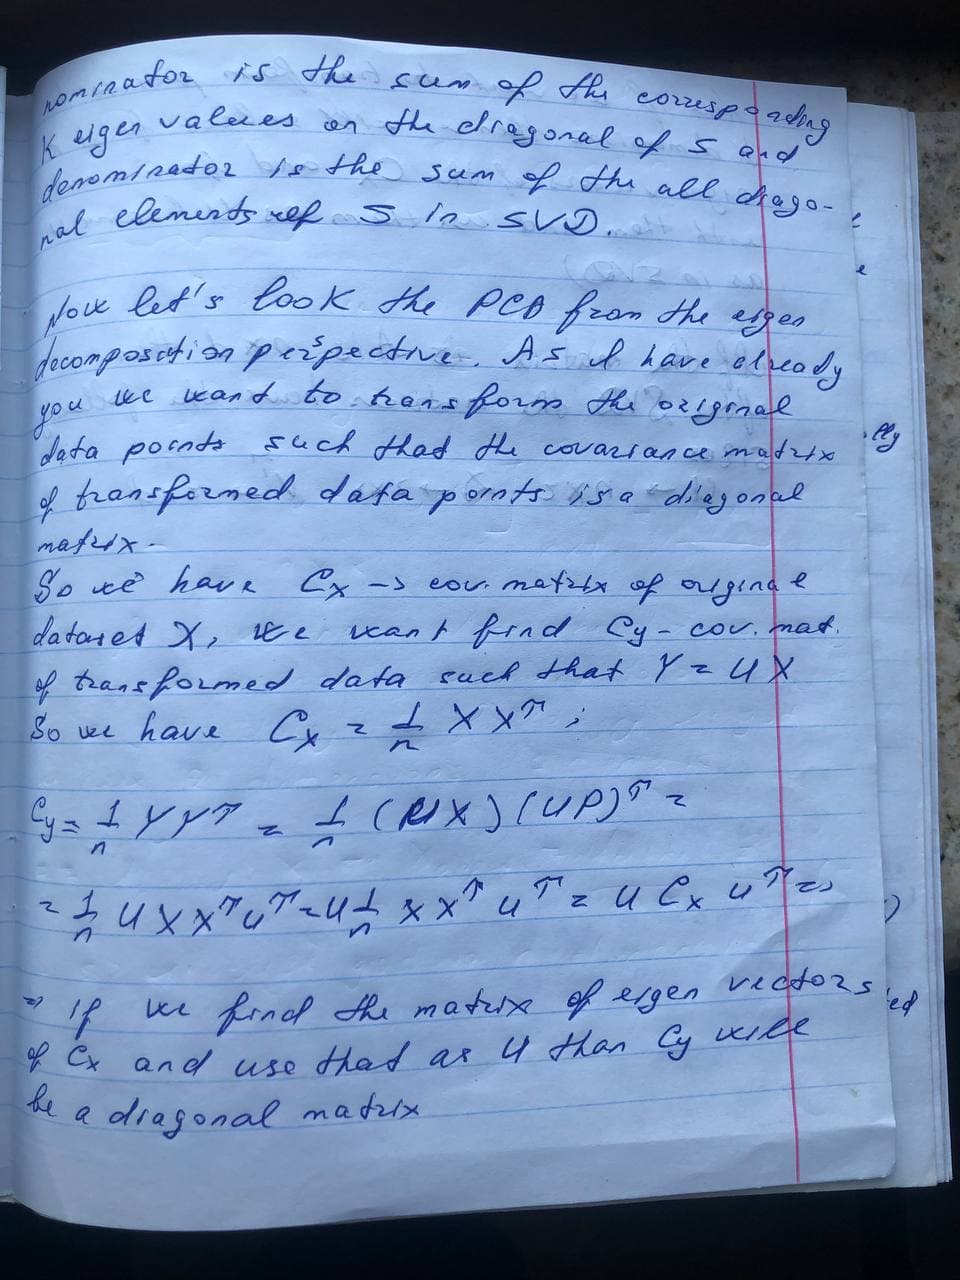 nominator is the sum of the corresponding
K eigen values on the diagonal of S and
denominator is the sum of the all diago-
nal elements of S in SVD.
Now let's look the PCA from the eigen
decomposition perspective. As I have already
you we want to transform the original
data points such that the covariance matrix
of transformed data points is a diagonal
matrix.
So we have Cx -> cov. matrix of original
dataset X, we want find Cy - cov. mat.
of transformed data such that Y = UX
So we have Cx = 1/n X X^T ;
Cy = 1/n Y Y^T = 1/n (UX) (UP)^T =
= 1/n U X X^T U^T = U 1/n X X^T U^T = U Cx U^T =>
=> if we find the matrix of eigen vectors
of Cx and use that as U than Cy will
be a diagonal matrix
lly
ed